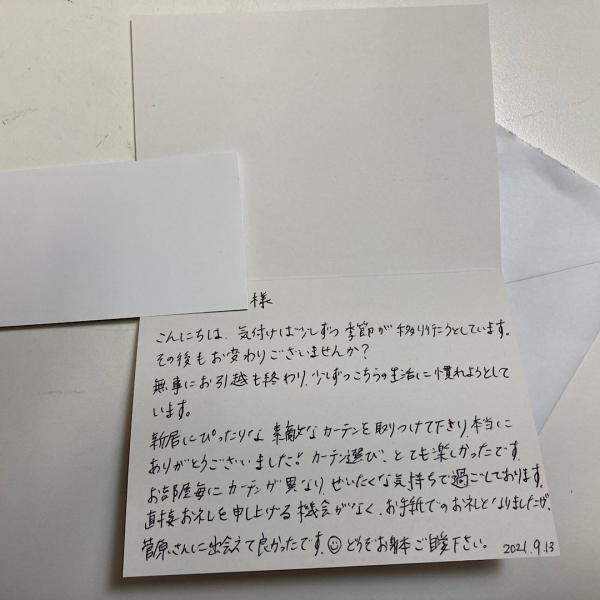 様
こんにちは。気付けば少しずつ季節が移り行こうとしています。
その後もお変わりございませんか？
無事にお引越も終わり、少しずつこちらの生活に慣れようとして
います。
新居にぴったりな 素敵な カーテンを取りつけて下さり、本当に
ありがとうございました！ カーテン選び、とても楽しかったです。
お部屋毎にカーテンが異なり、ぜいたくな気持ちで過ごしております。
直接お礼を申し上げる機会がなく、お手紙でのお礼となりましたが、
菅原さんに出会えて良かったです。☺ どうぞお身体ご自愛下さい。 2021.9.13